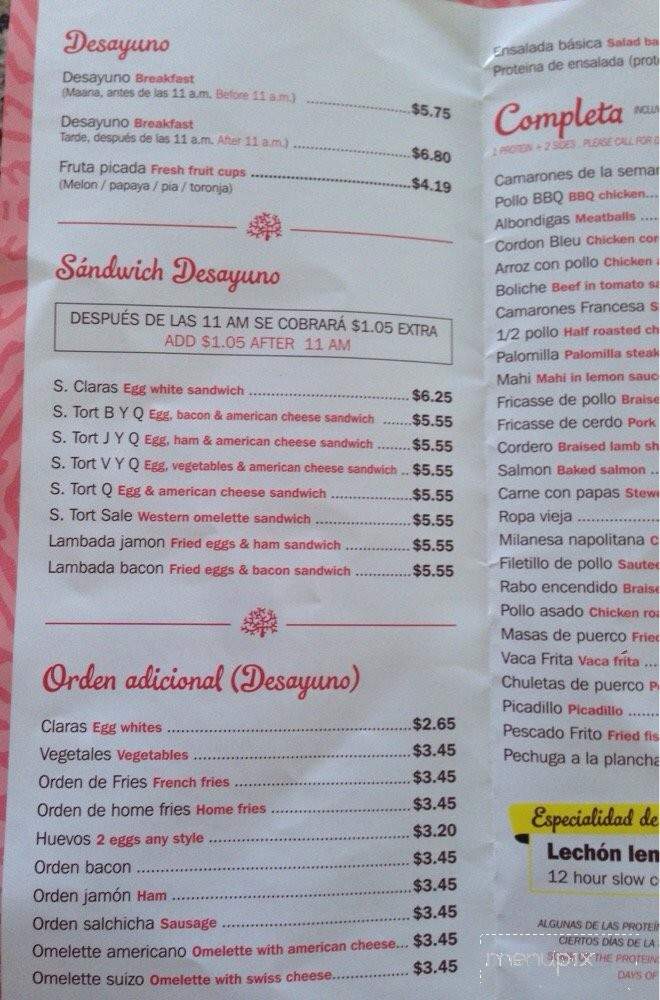 Desayuno
Desayuno Breakfast
(Maana, antes de las 11 a.m. Before 11 a.m.) $5.75
Desayuno Breakfast
Tarde, después de las 11 a.m. After 11 a.m.) $6.80
Fruta picada Fresh fruit cups $4.19
(Melon / papaya / pia / toronja)
Sándwich Desayuno
DESPUÉS DE LAS 11 AM SE COBRARÁ $1.05 EXTRA
ADD $1.05 AFTER 11 AM
S. Claras Egg white sandwich $6.25
S. Tort B Y Q Egg, bacon & american cheese sandwich $5.55
S. Tort J Y Q Egg, ham & american cheese sandwich $5.55
S. Tort V Y Q Egg, vegetables & american cheese sandwich $5.55
S. Tort Q Egg & american cheese sandwich $5.55
S. Tort Sale Western omelette sandwich $5.55
Lambada jamon Fried eggs & ham sandwich $5.55
Lambada bacon Fried eggs & bacon sandwich $5.55
Orden adicional (Desayuno)
Claras Egg whites $2.65
Vegetales Vegetables $3.45
Orden de Fries French fries $3.45
Orden de home fries Home fries $3.45
Huevos 2 eggs any style $3.20
Orden bacon $3.45
Orden jamón Ham $3.45
Orden salchicha Sausage $3.45
Omelette americano Omelette with american cheese... $3.45
Omelette suizo Omelette with swiss cheese $3.45
Ensalada básica Salad ba
Proteina de ensalada (prot
Completa INCLU
1 PROTEIN + 2 SIDES . PLEASE CALL FOR
Camarones de la semar
Pollo BBQ BBQ chicken...
Albondigas Meatballs
Cordon Bleu Chicken cor
Arroz con pollo Chicken
Boliche Beef in tomato sa
Camarones Francesa S
1/2 pollo Half roasted ch
Palomilla Palomilla steak
Mahi Mahi in lemon sauc
Fricasse de pollo Braise
Fricasse de cerdo Pork
Cordero Braised lamb sh
Salmon Baked salmon
Carne con papas Stewe
Ropa vieja
Milanesa napolitana C
Filetillo de pollo Sautee
Rabo encendido Braise
Pollo asado Chicken roa
Masas de puerco Fried
Vaca Frita Vaca frita
Chuletas de puerco P
Picadillo Picadillo
Pescado Frito Fried fis
Pechuga a la plancha
Especialidad de
Lechón len
12 hour slow c
ALGUNAS DE LAS PROTEÍ
CIERTOS DÍAS DE LA
THE PROTEINS
DAYS OF
menupix